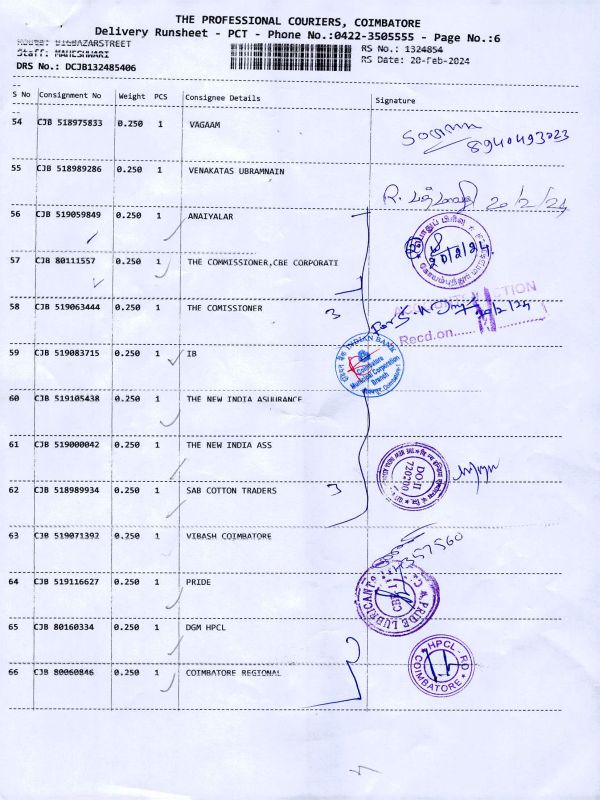 THE PROFESSIONAL COURIERS, COIMBATORE
Delivery Runsheet - PCT - Phone No.:0422-3505555 - Page No.:6
Staff: MAHESHWARI
RS No.: 1324854
DRS No.: DCJB132485406
RS Date: 20-Feb-2024
S No Consignment No Weight PCS Consignee Details Signature
54 CJB 518975833 0.250 1 VAGAAM
8940493023
55 CJB 518989286 0.250 1 VENAKATAS UBRAMNAIN
R. 20/2/24
56 CJB 519059849 0.250 1 ANAIYALAR
20/2/24
57 CJB 80111557 0.250 1 THE COMMISSIONER,CBE CORPORATI
58 CJB 519063444 0.250 1 THE COMISSIONER 3
20/2/24
Recd.on
59 CJB 519083715 0.250 1 IB
INDIAN BANK
Coimbatore
Municipal Corporation
Branch
60 CJB 519105438 0.250 1 THE NEW INDIA ASUURANCE
61 CJB 519000042 0.250 1 THE NEW INDIA ASS
DO II
720200
62 CJB 518989934 0.250 1 SAB COTTON TRADERS 3
63 CJB 519071392 0.250 1 VIBASH COIMBATORE
64 CJB 519116627 0.250 1 PRIDE
PRIDE LUBRICANT
65 CJB 80160334 0.250 1 DGM HPCL
HPCL - RO
COIMBATORE
66 CJB 80060846 0.250 1 COIMBATORE REGIONAL